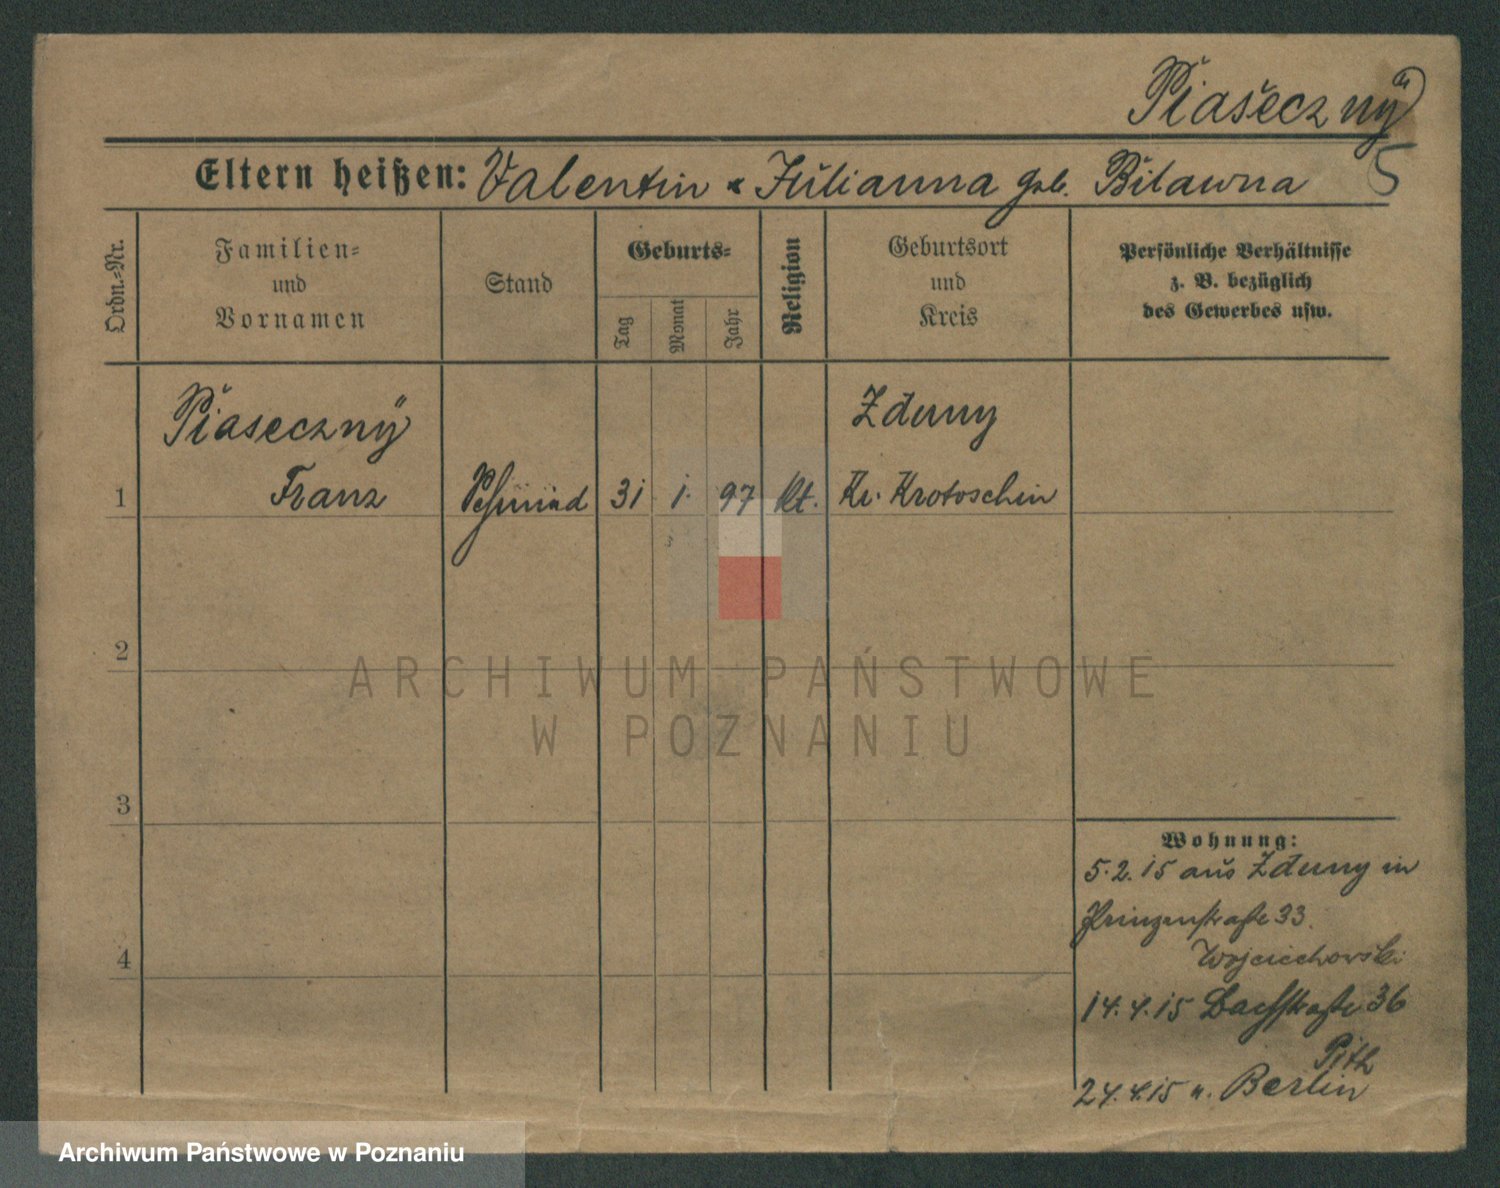 Piaseczny
5
Eltern heißen: Valentin u Julianna geb. Bilawna
Ordn.-Nr.
Familien-
und
Vornamen
Stand
Geburts-
Tag
Monat
Jahr
Religion
Geburtsort
und
Kreis
Persönliche Verhältnisse
z. B. bezüglich
des Gewerbes usw.
Piaseczny
Zduny
1
Franz
31
1.
97
kt.
Kr. Krotoschin
2
3
4
Wohnung:
5.2.15 aus Zduny in
Prinzenstraße 33.
Wojciechowski
14.4.15 Bachstraße 36
24.4.15 n. Berlin
ARCHIWUM PAŃSTWOWE
W POZNANIU
Archiwum Państwowe w Poznaniu